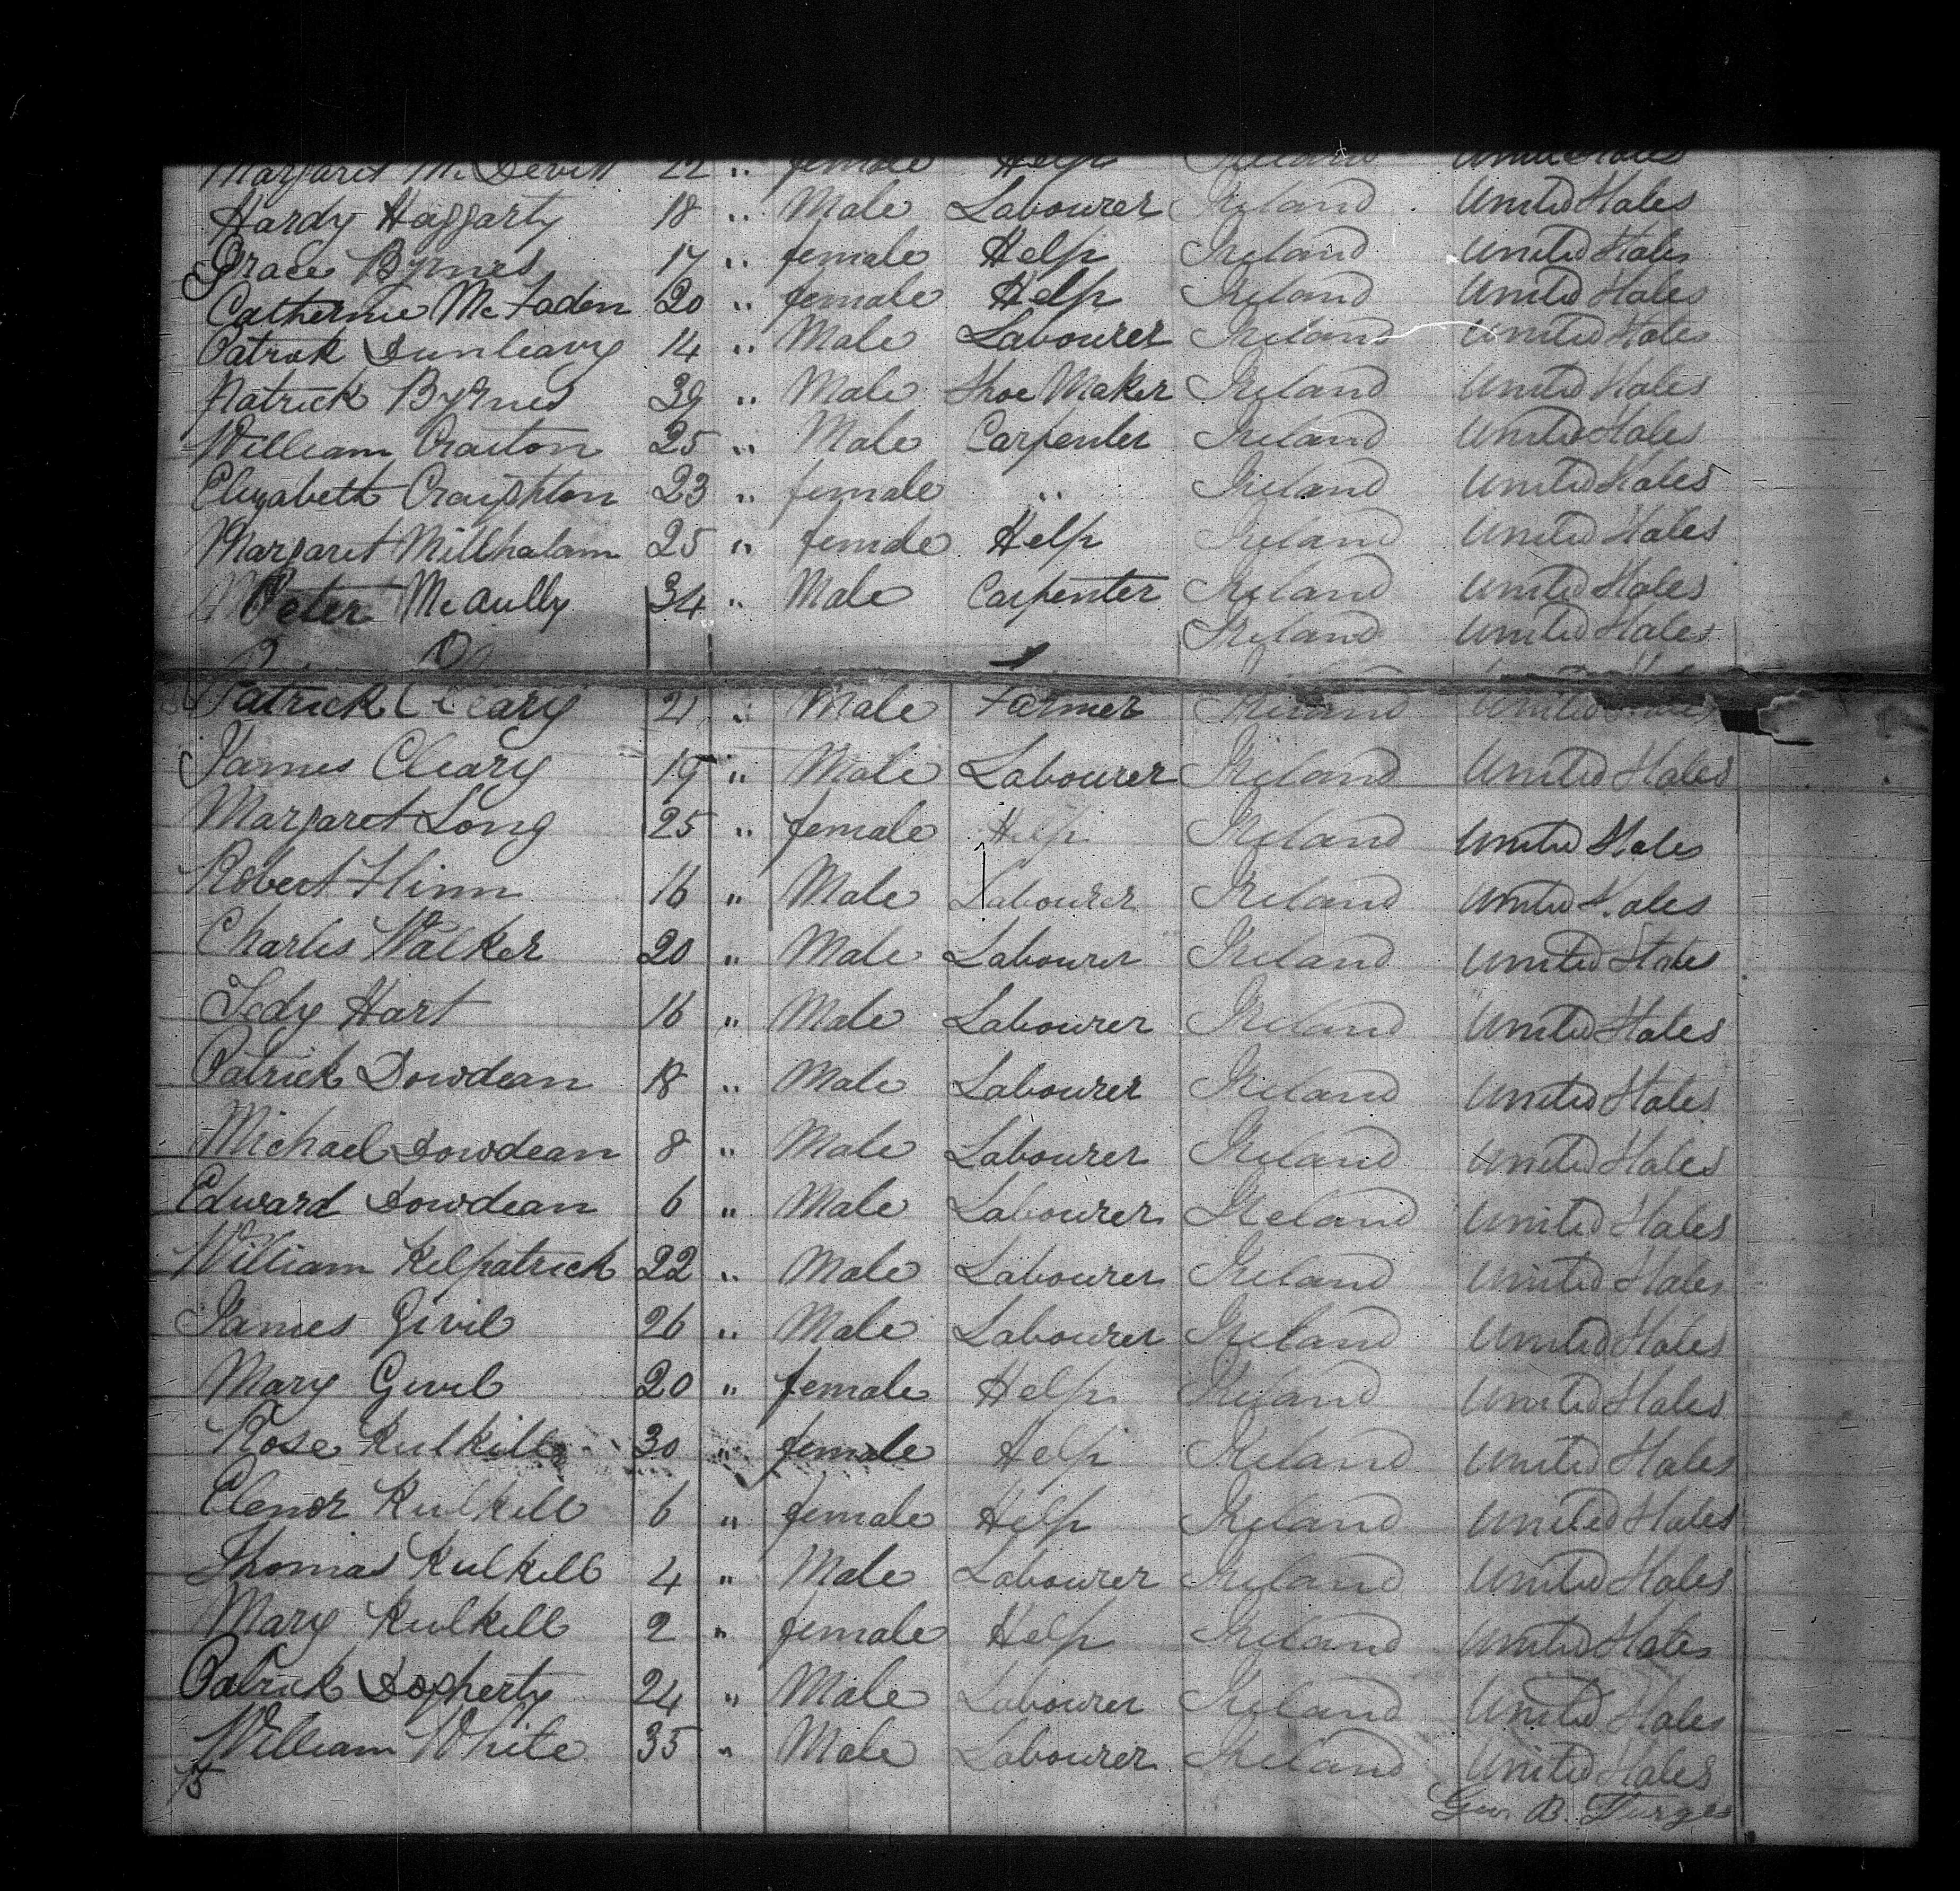 Margaret McDevitt 22 " female Help Ireland United States
Hardy Haggarty 18 " Male Labourer Ireland United States
Grace Byrnes 17 " female Help Ireland United States
Catherine McFaden 20 " female Help Ireland United States
Patrick Dunleavy 14 " Male Labourer Ireland United States
Patrick Byrnes 39 " Male Shoe Maker Ireland United States
William Craiton 25 " Male Carpenter Ireland United States
Elizabeth Craighton 23 " female " Ireland United States
Margaret Millhalam 25 " female Help Ireland United States
Peter McAully 34 " Male Carpenter Ireland United States
Ireland United States
Patrick Cleary 21 " Male Farmer Ireland United States
James Cleary 19 " Male Labourer Ireland United States
Margaret Long 25 " female Help Ireland United States
Robert Flinn 16 " Male Labourer Ireland United States
Charles Walker 20 " Male Labourer Ireland United States
Tedy Hart 16 " Male Labourer Ireland United States
Patrick Dowdean 18 " Male Labourer Ireland United States
Michael Dowdean 8 " Male Labourer Ireland United States
Edward Dowdean 6 " Male Labourer Ireland United States
William Kelpatrick 22 " Male Labourer Ireland United States
James Givil 26 " Male Labourer Ireland United States
Mary Givil 20 " female Help Ireland United States
Rose Kulkill 30 " female Help Ireland United States
Elenor Kulkill 6 " female Help Ireland United States
Thomas Kulkill 4 " Male Labourer Ireland United States
Mary Kulkill 2 " female Help Ireland United States
Patrick Dogherty 24 " Male Labourer Ireland United States
William White 35 " Male Labourer Ireland United States
75
Geo. B.